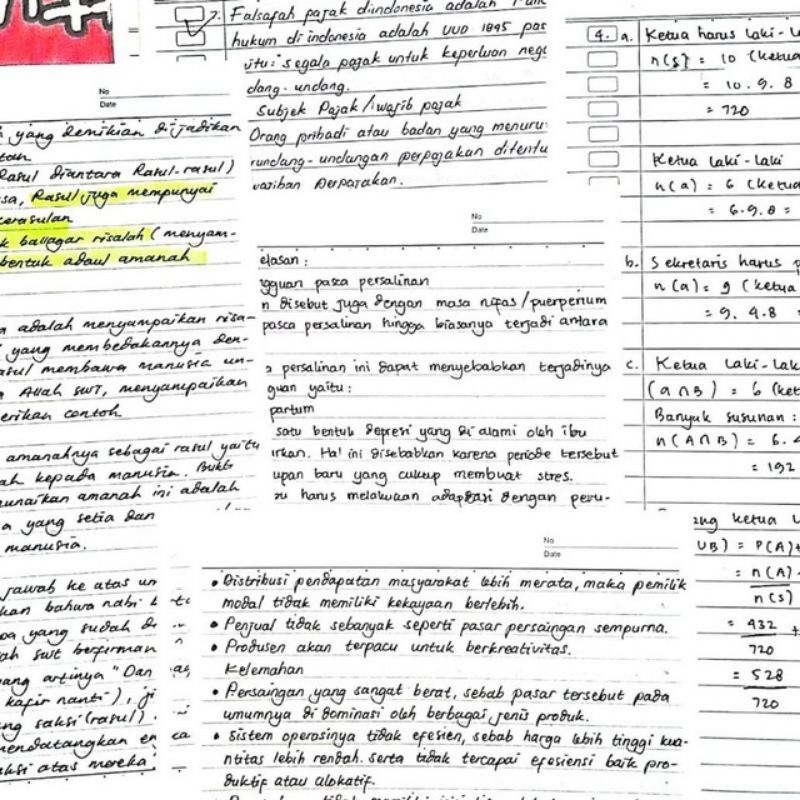 7. Falsafah pajak diindonesia adalah
hukum di indonesia adalah UUD 1945 pas
itu: segala pajak untuk keperluan nega
dang-undang.
Subjek Pajak/wajib pajak
Orang pribadi atau badan yang menuru
rundang-undangan perpajakan ditentu
wajiban perpajakan.
4. a. Ketua harus laki-la
n(s) = 10 (ketua
= 10.9.8
= 720
Ketua laki-laki
n(a) = 6 (ketua
= 6.9.8 =
b. Sekretaris harus p
n(a) = 9 (ketua
= 9.4.8
c. Ketua laki-lak
(a∩B) = 6 (ket
Banyak susunan :
n(A∩B) = 6.4
= 192
ang ketua
UB) = P(A)+
= n(A)
n(s)
= 432 +
720
= 528
720
No
Date
yang demikian dijadikan
Rasul diantara Rasul-rasul)
sa, Rasul juga mempunyai
kerasulan
k ballagar risalah (menyam-
bentuk adaul amanah
a adalah menyampaikan risa-
yang membedakannya den-
asul membawa manusia un-
a Allah SWT, menyampaikan
erikan contoh
amanahnya sebagai rasul yaitu
ah kepada manusia. Bukti
unaikan amanah ini adalah
a yang setia dan
manusia.
jawab ke atas um
kan bahwa nabi
pa yang sudah di
ah swt berfirman
yang artinya "Dan
kafir nanti), ji
ng saksi (rasul)
mendatangkan en
aksi atas mereka
No
Date
elasan :
gguan pasca persalinan
n disebut juga dengan masa nifas/puerperium
pasca persalinan hingga biasanya terjadi antara
a persalinan ini dapat menyebabkan terjadinya
guan yaitu :
partum
satu bentuk depresi yang di alami oleh ibu
irkan. Hal ini disebabkan karena periode tersebut
upan baru yang cukup membuat stres.
zu harus melakukan adaptasi dengan peru-
No
Date
• Distribusi pendapatan masyarakat lebih merata, maka pemilik
modal tidak memiliki kekayaan berlebih.
• Penjual tidak sebanyak seperti pasar persaingan sempurna.
• Produsen akan terpacu untuk berkreativitas.
Kelemahan
• Persaingan yang sangat berat, sebab pasar tersebut pada
umumnya di dominasi oleh berbagai jenis produk.
• Sistem operasinya tidak efesien, sebab harga lebih tinggi kua-
ntitas lebih rendah. serta tidak tercapai efesiensi baik pro-
duktif atau alokatif.